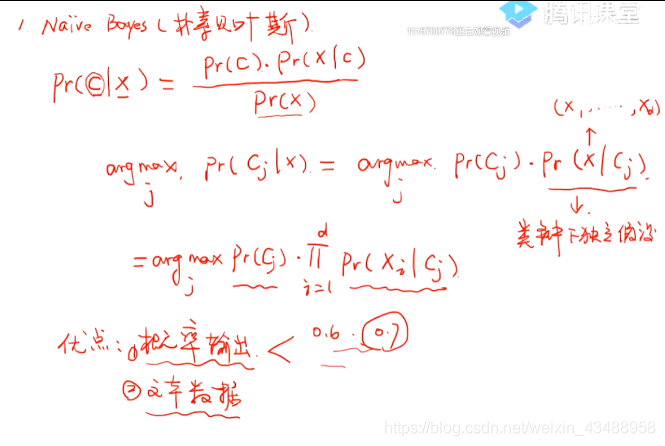 腾讯课堂
1. Naïve Bayes (朴素贝叶斯).
Pr(C|X) = Pr(C)·Pr(X|C) / Pr(X)
(X1, ....., Xd)
argmax j Pr(Cj|X) = argmax j Pr(Cj)·Pr(X|Cj)
类条件下独立假设
= argmax j Pr(Cj)·∏ i=1 d Pr(Xi|Cj)
优点: ① 概率输出 < 0.6 · 0.7
② 文本数据
https://blog.csdn.net/weixin_43488958